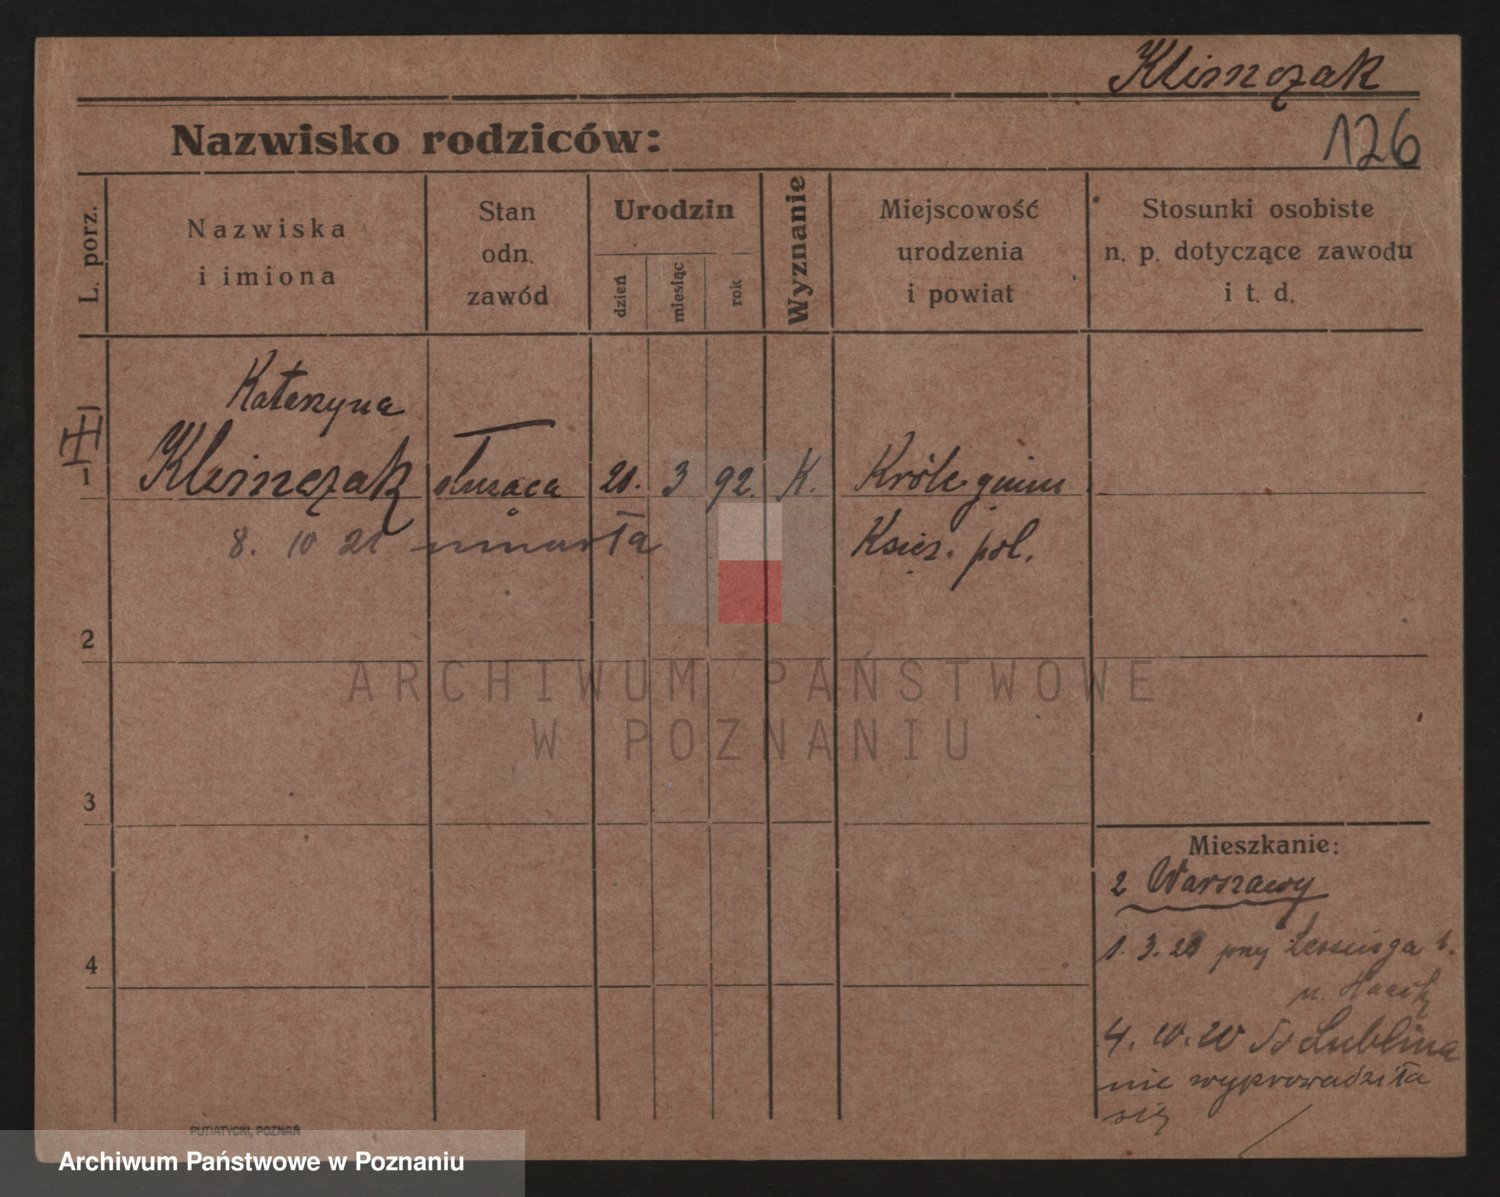 Klimczak
Nazwisko rodziców:
126
L. porz.
Nazwiska
i imiona
Stan
odn.
zawód
Urodzin
dzień
miesiąc
rok
Wyznanie
Miejscowość
urodzenia
i powiat
Stosunki osobiste
n. p. dotyczące zawodu
i t. d.
Katarzyna
1 Klimczak służąca 20. 3 92. K. Króle gmin
8. 10 21 umarła Księs. pol.
2
3
4
Mieszkanie:
z Warszawy
1. 3. 20 przy Lessinga
4. 10. 20 do Lublina
nie wyprowadziła
się
PUTIATYCKI, POZNAŃ
ARCHIWUM PAŃSTWOWE
W POZNANIU
Archiwum Państwowe w Poznaniu